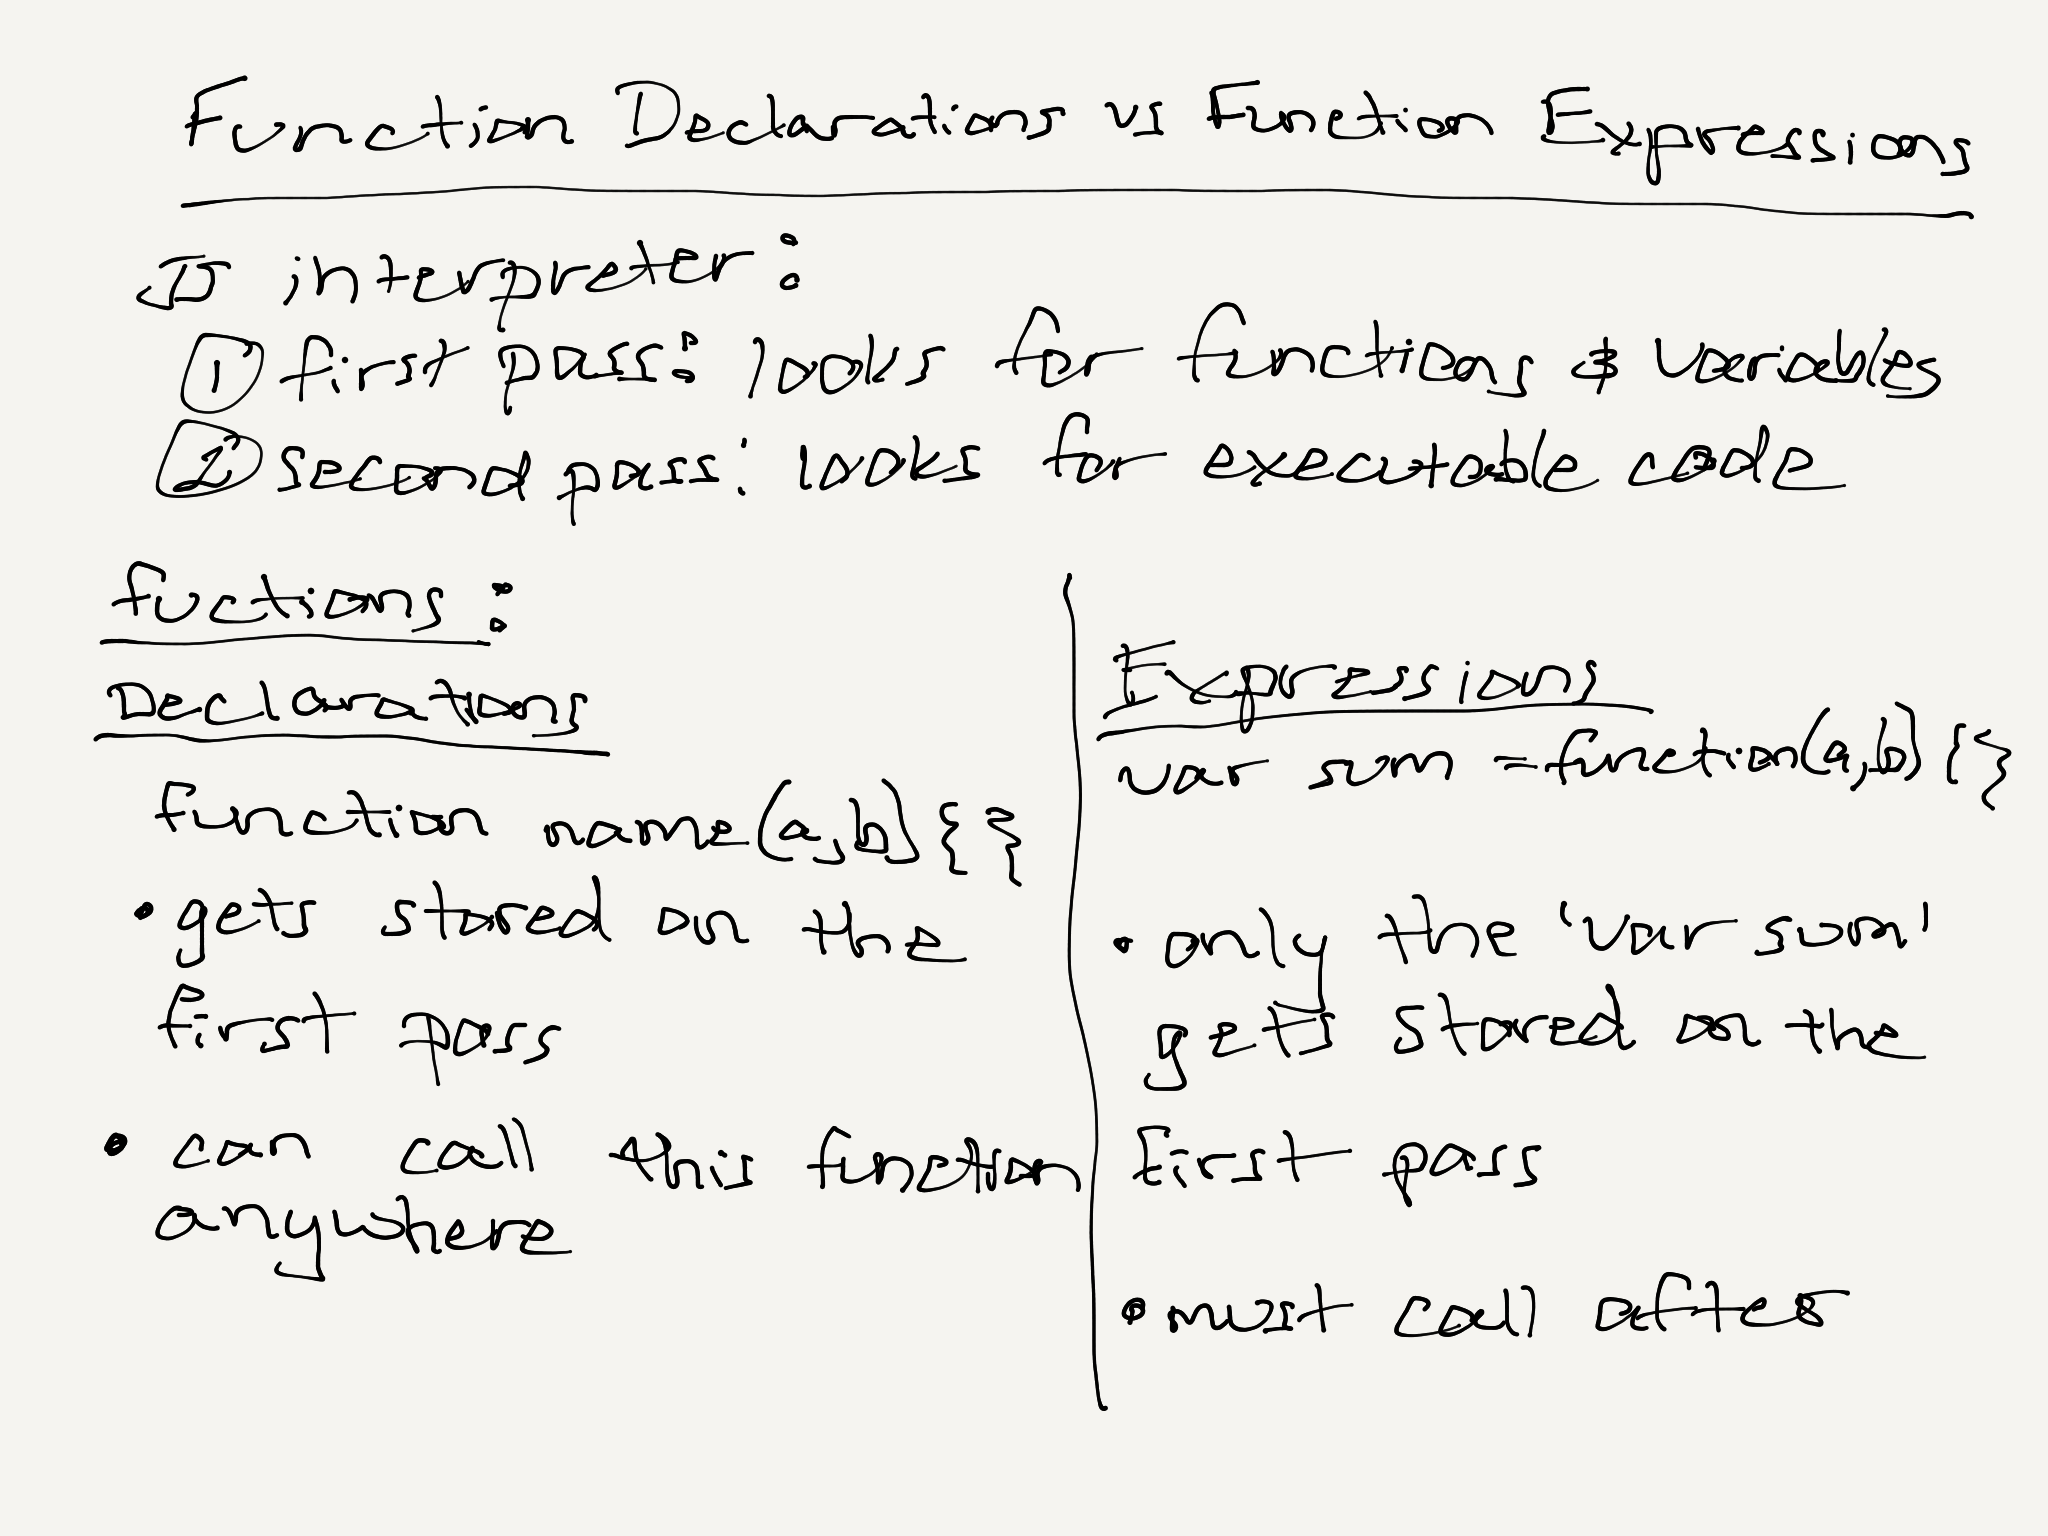 Function Declarations vs Function Expressions
JS interpreter:
① first pass: looks for functions & variables
② second pass: looks for executable code
fuctions:
Declarations
function name(a,b){ }
• gets stored on the
first pass
• can call this function
anywhere
Expressions
var sum = function(a,b) { }
• only the 'var sum'
gets stored on the
first pass
• must call after